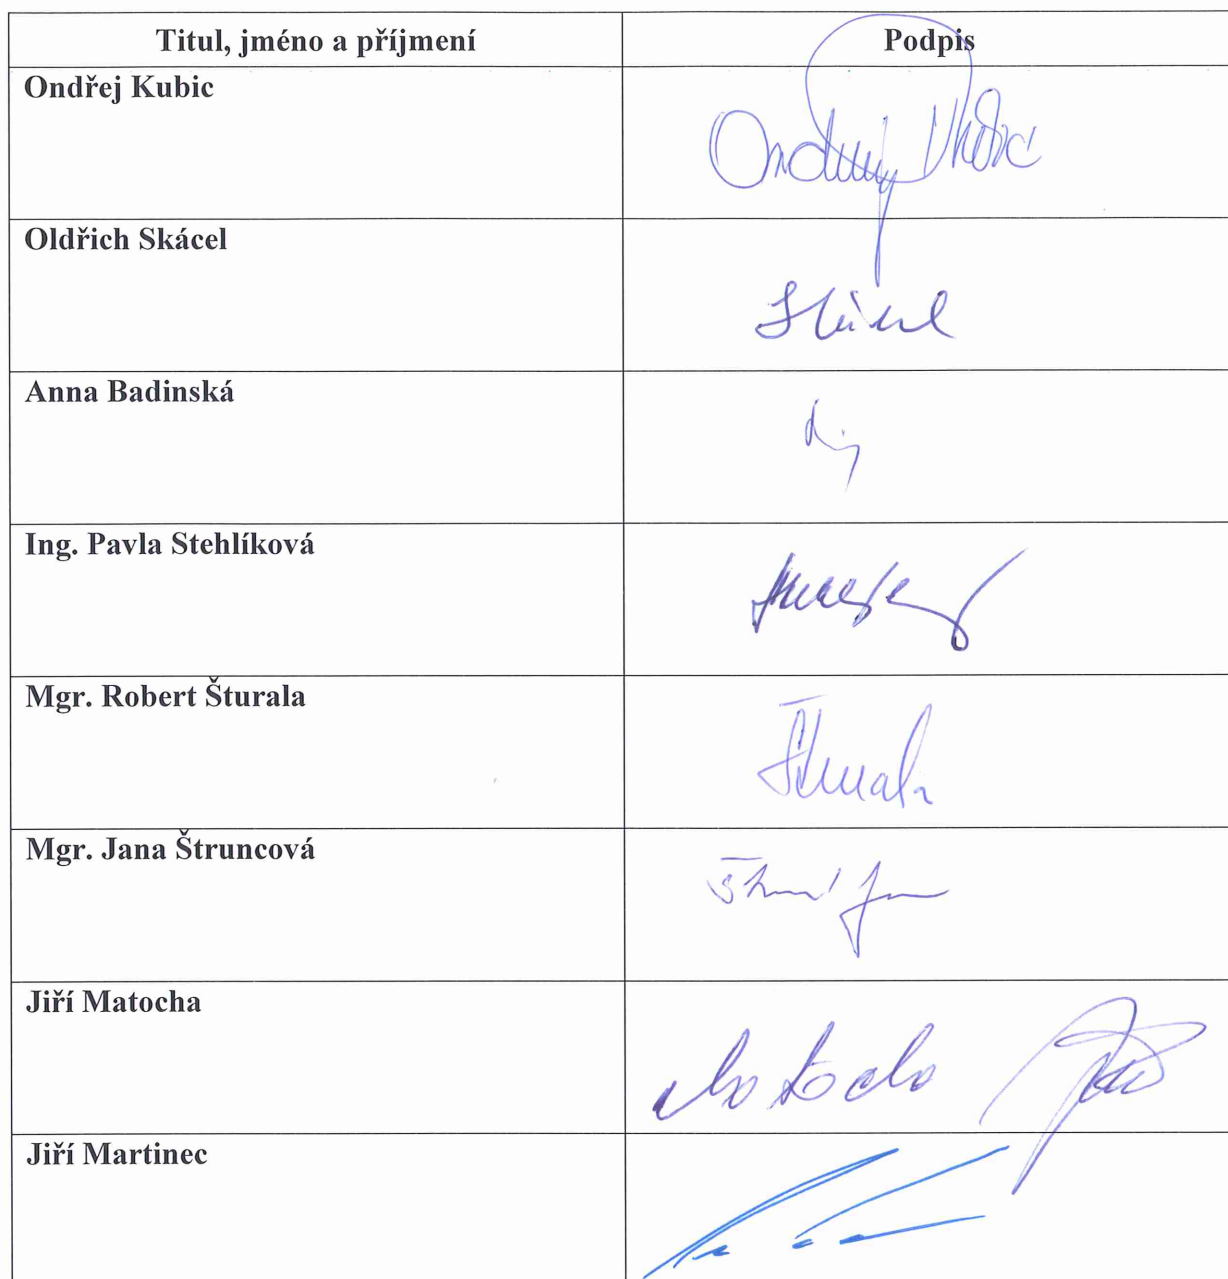 Titul, jméno a příjmení Podpis
Ondřej Kubic Ondřej Kubic
Oldřich Skácel Skácel
Anna Badinská
Ing. Pavla Stehlíková
Mgr. Robert Šturala Šturala
Mgr. Jana Štruncová
Jiří Matocha Matocha
Jiří Martinec